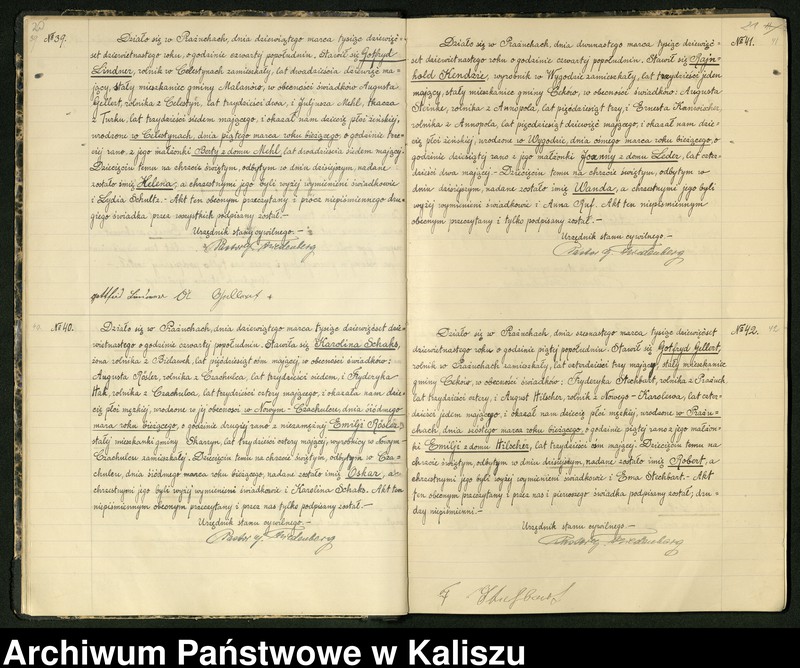 №39.
Działo się w Prażuchach, dnia dziewiątego marca tysiąc dziewięć-
set dziewiętnastego roku, o godzinie czwartej popołudniu. Stawił się Gotfryd
Lindner, rolnik w Celestynach zamieszkały, lat dwadzieścia dziewięć ma-
jący, stały mieszkaniec gminy Malanów, w obecności świadków: Augusta
Gellert, rolnika z Celestyn, lat trzydzieści dwa, i Juljusza Mehl, tkacza
z Turku, lat trzydzieści siedem mającego, i okazał nam dziecię płci żeńskiej,
urodzone w Celestynach, dnia piątego marca roku bieżącego, o godzinie trze-
ciej rano, z jego małżonki Berty z domu Mehl, lat dwadzieścia siedem mającej.
Dziecięciu temu na chrzcie świętym, odbytym w dniu dzisiejszym, nadane
zostało imię Helena, a chrzestnymi jego byli wyżej wymienieni świadkowie
i Lydia Schultz.- Akt ten obecnym przeczytany i prócz niepiśmiennego dru-
giego świadka przez wszystkich podpisany został.-
Urzędnik stanu cywilnego.-
Pastor Friedenberg
Gottfried Lindner Gellert
№40.
Działo się w Prażuchach, dnia dziewiątego marca tysiąc dziewięćset dzie-
więtnastego o godzinie czwartej popołudniu. Stawiła się Karolina Schaks,
żona rolnika z Bidawek, lat pięćdziesiąt ośm mającej, w obecności świadków:
Augusta Rösler, rolnika z Czachulca, lat trzydzieści siedem, i Fryderyka
Hak, rolnika z Czachulca, lat trzydzieści cztery mającego, i okazała nam dzie-
cię płci męzkiej, urodzone w jej obecności w Nowym-Czachulcu, dnia siódmego
marca roku bieżącego, o godzinie drugiej rano z niezamężnej Emilji Rösler,
stałej mieszkanki gminy Skarzyn, lat trzydzieści cztery mającej, wyrobnicy w Nowym-
Czachulcu zamieszkałej. Dziecięciu temu na chrzcie świętym, odbytym w Cza-
chulcu, dnia siódmego marca roku bieżącego, nadane zostało imię Oskar, a
chrzestnymi jego byli wyżej wymienieni świadkowie i Karolina Schaks. Akt ten
niepiśmiennym obecnym przeczytany i przez nas tylko podpisany został.-
Urzędnik stanu cywilnego.-
Pastor Friedenberg
№41.
Działo się w Prażuchach, dnia dwunastego marca tysiąc dziewięć-
set dziewiętnastego roku o godzinie czwartej popołudniu. Stawił się Rajn-
hold Kindzie, wyrobnik w Wygodzie zamieszkały, lat trzydzieści jeden
mający, stały mieszkaniec gminy Ceków, w obecności świadków: Augusta
rolnika z Annopola, lat pięćdziesiąt trzy, i Ernesta
rolnika z Annopola, lat pięćdziesiąt dziewięć mającego, i okazał nam dzie-
cię płci żeńskiej, urodzone w Wygodzie, dnia ósmego marca roku bieżącego, o
godzinie dziesiątej rano z jego małżonki Joanny z domu Leder, lat czter-
dzieści dwa mającej.- Dziecięciu temu na chrzcie świętym, odbytym w
dniu dzisiejszym, nadane zostało imię Wanda, a chrzestnymi jego byli
wyżej wymienieni świadkowie i Anna Ruf. Akt ten niepiśmiennym
obecnym przeczytany i tylko podpisany został.-
Urzędnik stanu cywilnego.-
Pastor Friedenberg
№42.
Działo się w Prażuchach, dnia szesnastego marca tysiąc dziewięćset
dziewiętnastego roku o godzinie piątej popołudniu. Stawił się Gotfryd Gellert,
rolnik w Prażuchach zamieszkały, lat czterdzieści trzy mający, stały mieszkaniec
gminy Ceków, w obecności świadków: Fryderyka Stichbart, rolnika z Prażuch,
lat trzydzieści cztery, i August Hilscher, rolnik z Nowego-Karolewa, lat czter-
dzieści jeden mającego, i okazał nam dziecię płci męzkiej, urodzone w Prażu-
chach, dnia szóstego marca roku bieżącego, o godzinie piątej rano z jego małżon-
ki Emilji z domu Hilscher, lat trzydzieści ośm mającej. Dziecięciu temu na
chrzcie świętym, odbytym w dniu dzisiejszym, nadane zostało imię Robert, a
chrzestnymi jego byli wyżej wymienieni świadkowie i Ema Stichbart.- Akt
ten obecnym przeczytany i przez nas i pierwszego świadka podpisany został; dru-
dzy niepiśmienni.-
Urzędnik stanu cywilnego.-
Pastor Friedenberg
Archiwum Państwowe w Kaliszu